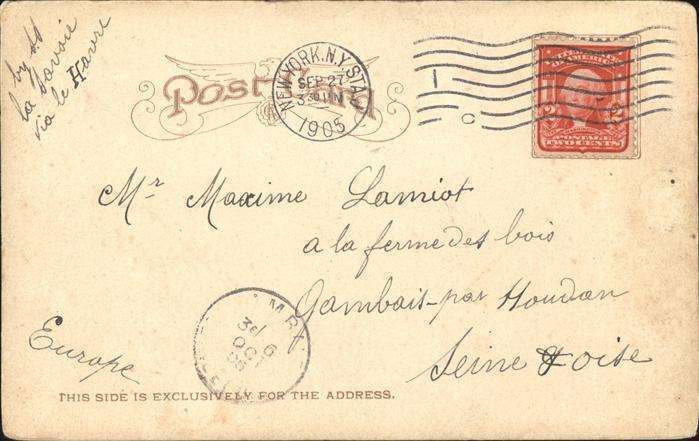 by ss
la Savoie
via le Havre
Post Card
NEW YORK, N.Y. STA.
SEP 27
1905
1
C
2 2
POSTAGE
TWO CENTS
Mr Maxime Lamiot
a la ferme des bois
Gambais-par Houdan
Seine & oise
Europe
3e
6
OCT
05
THIS SIDE IS EXCLUSIVELY FOR THE ADDRESS.